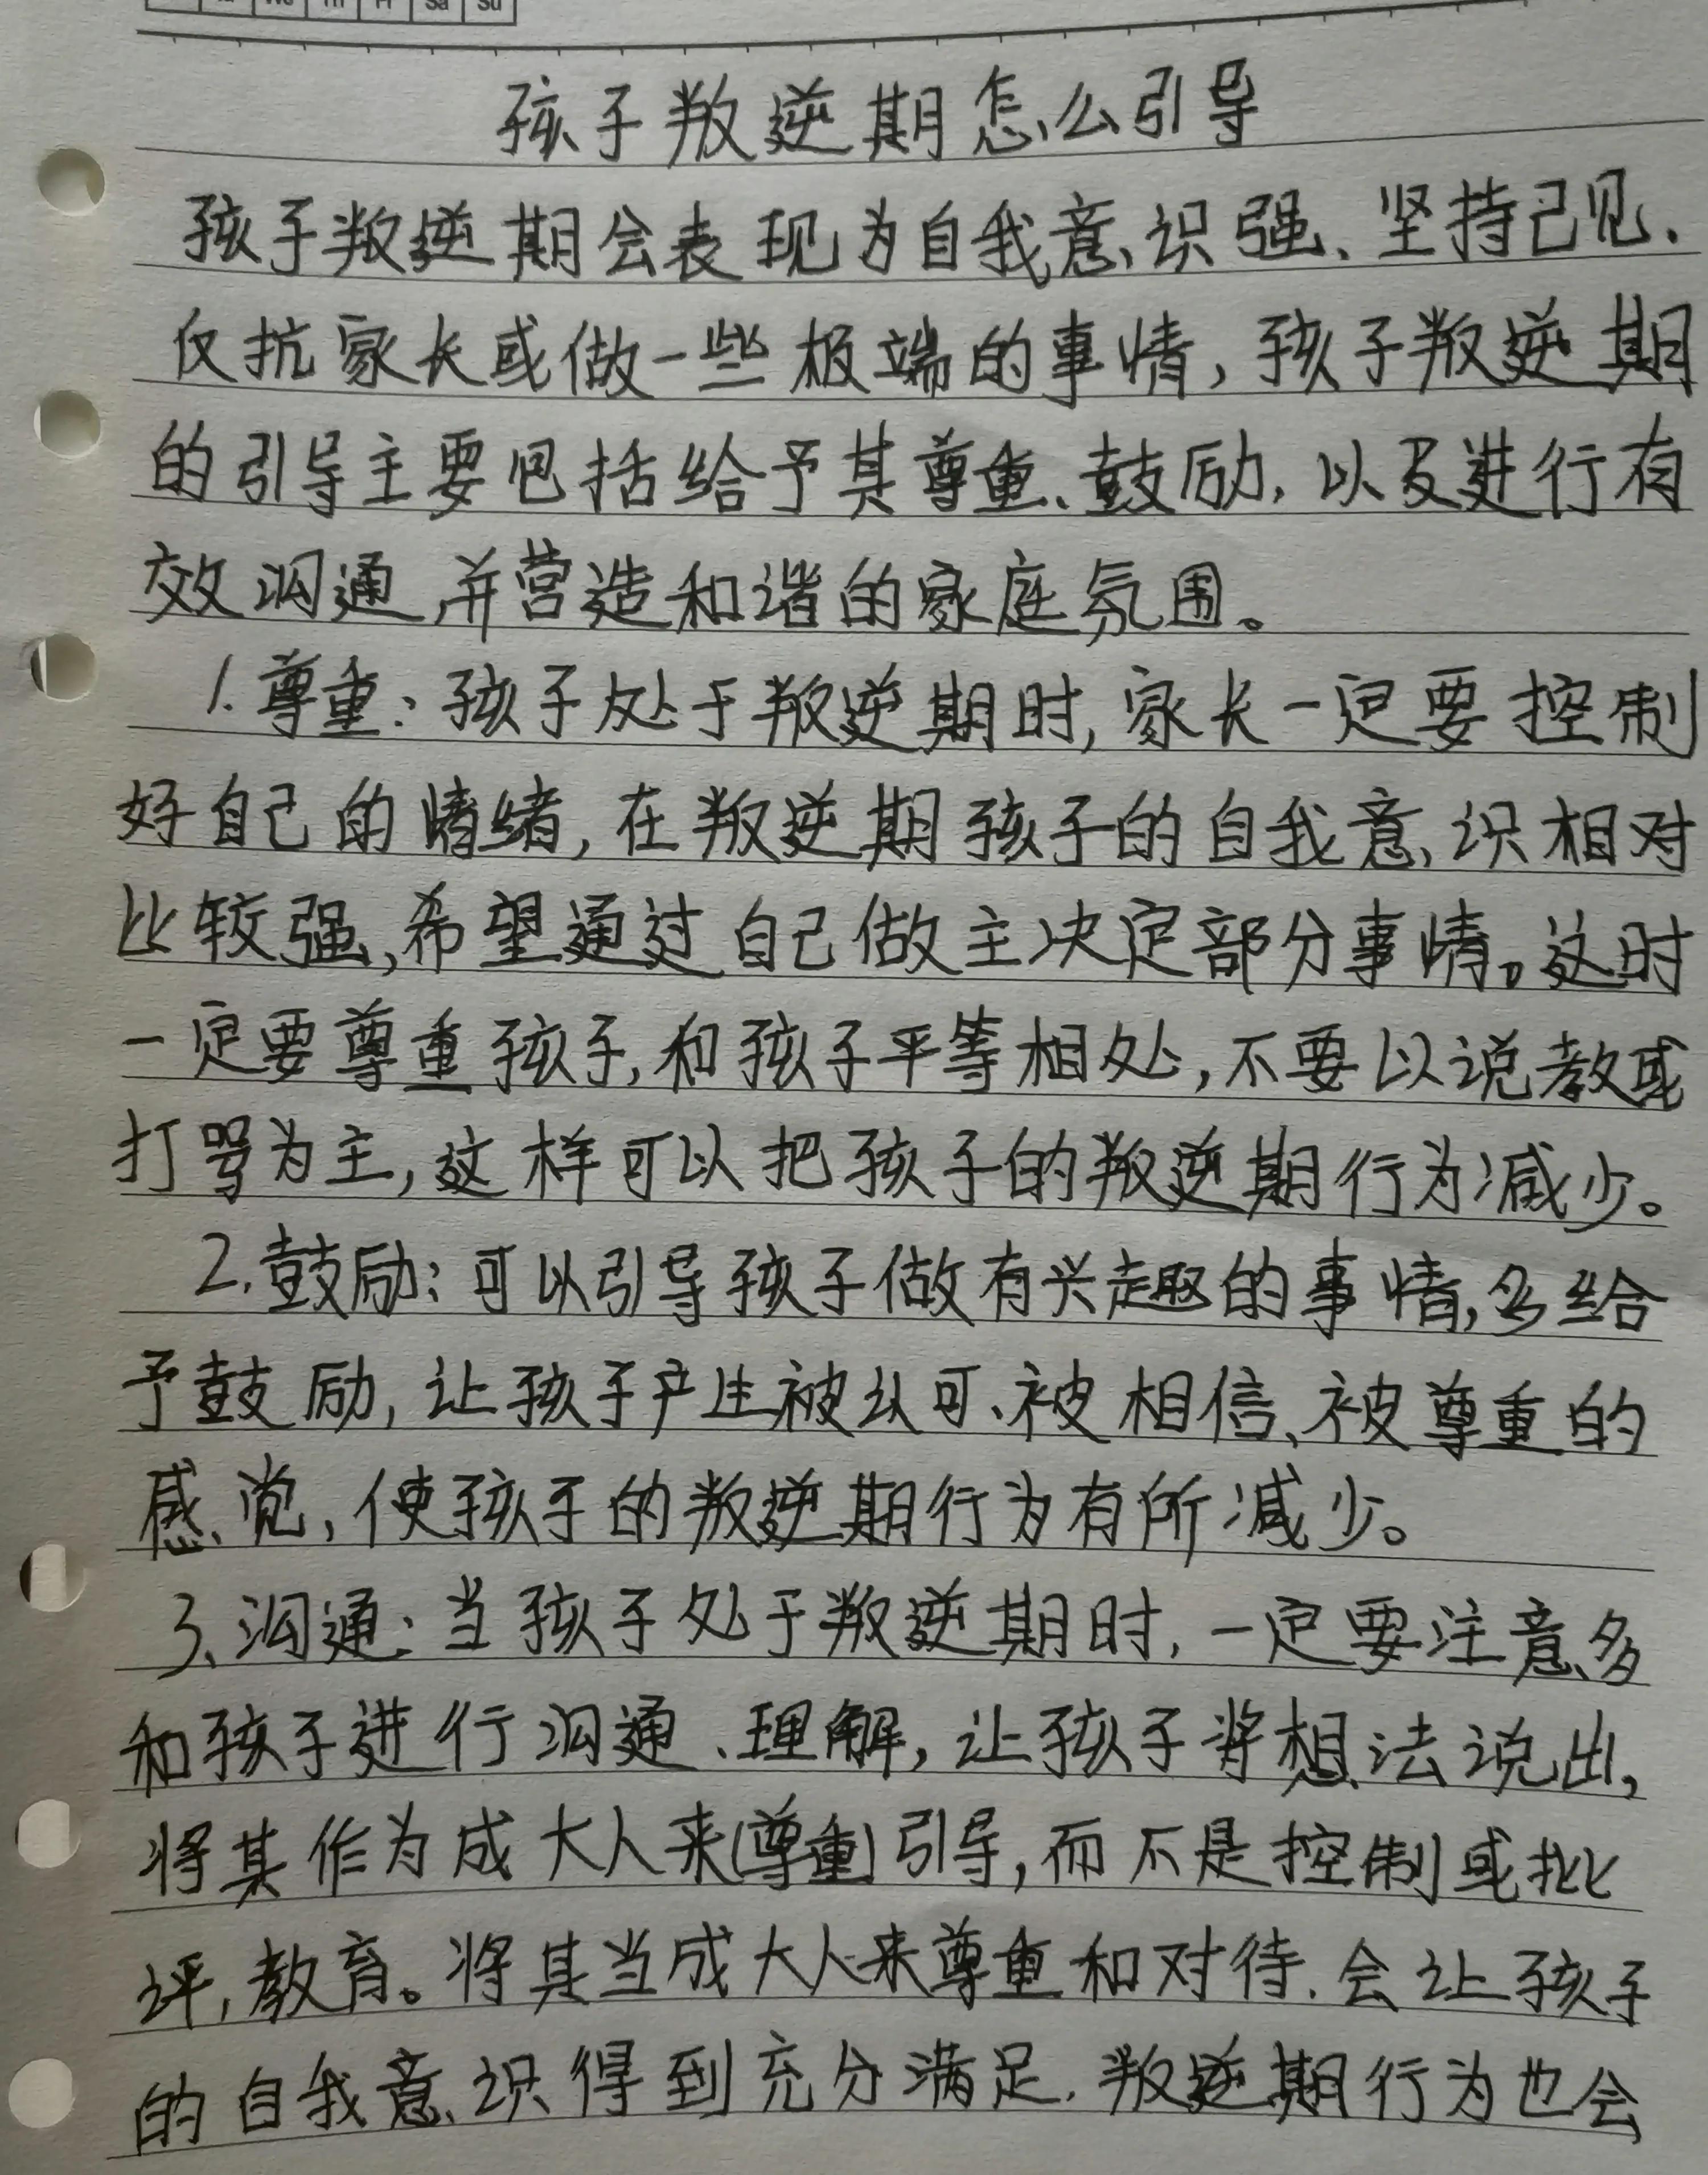 Sa Su
孩子叛逆期怎么引导
孩子叛逆期会表现为自我意识强、坚持己见、
反抗家长或做一些极端的事情,孩子叛逆期
的引导主要包括给予其尊重、鼓励,以及进行有
效沟通,并营造和谐的家庭氛围。
1.尊重:孩子处于叛逆期时,家长一定要控制
好自己的情绪,在叛逆期孩子的自我意识相对
比较强,希望通过自己做主决定部分事情。这时
一定要尊重孩子,和孩子平等相处,不要以说教或
打骂为主,这样可以把孩子的叛逆期行为减少。
2.鼓励:可以引导孩子做有兴趣的事情,多给
予鼓励,让孩子产生被认可、被相信、被尊重的
感觉,使孩子的叛逆期行为有所减少。
3、沟通:当孩子处于叛逆期时,一定要注意多
和孩子进行沟通、理解,让孩子将想法说出,
将其作为成大人来(尊重)引导,而不是控制或批
评,教育。将其当成大人来尊重和对待.会让孩子
的自我意识得到充分满足.叛逆期行为也会